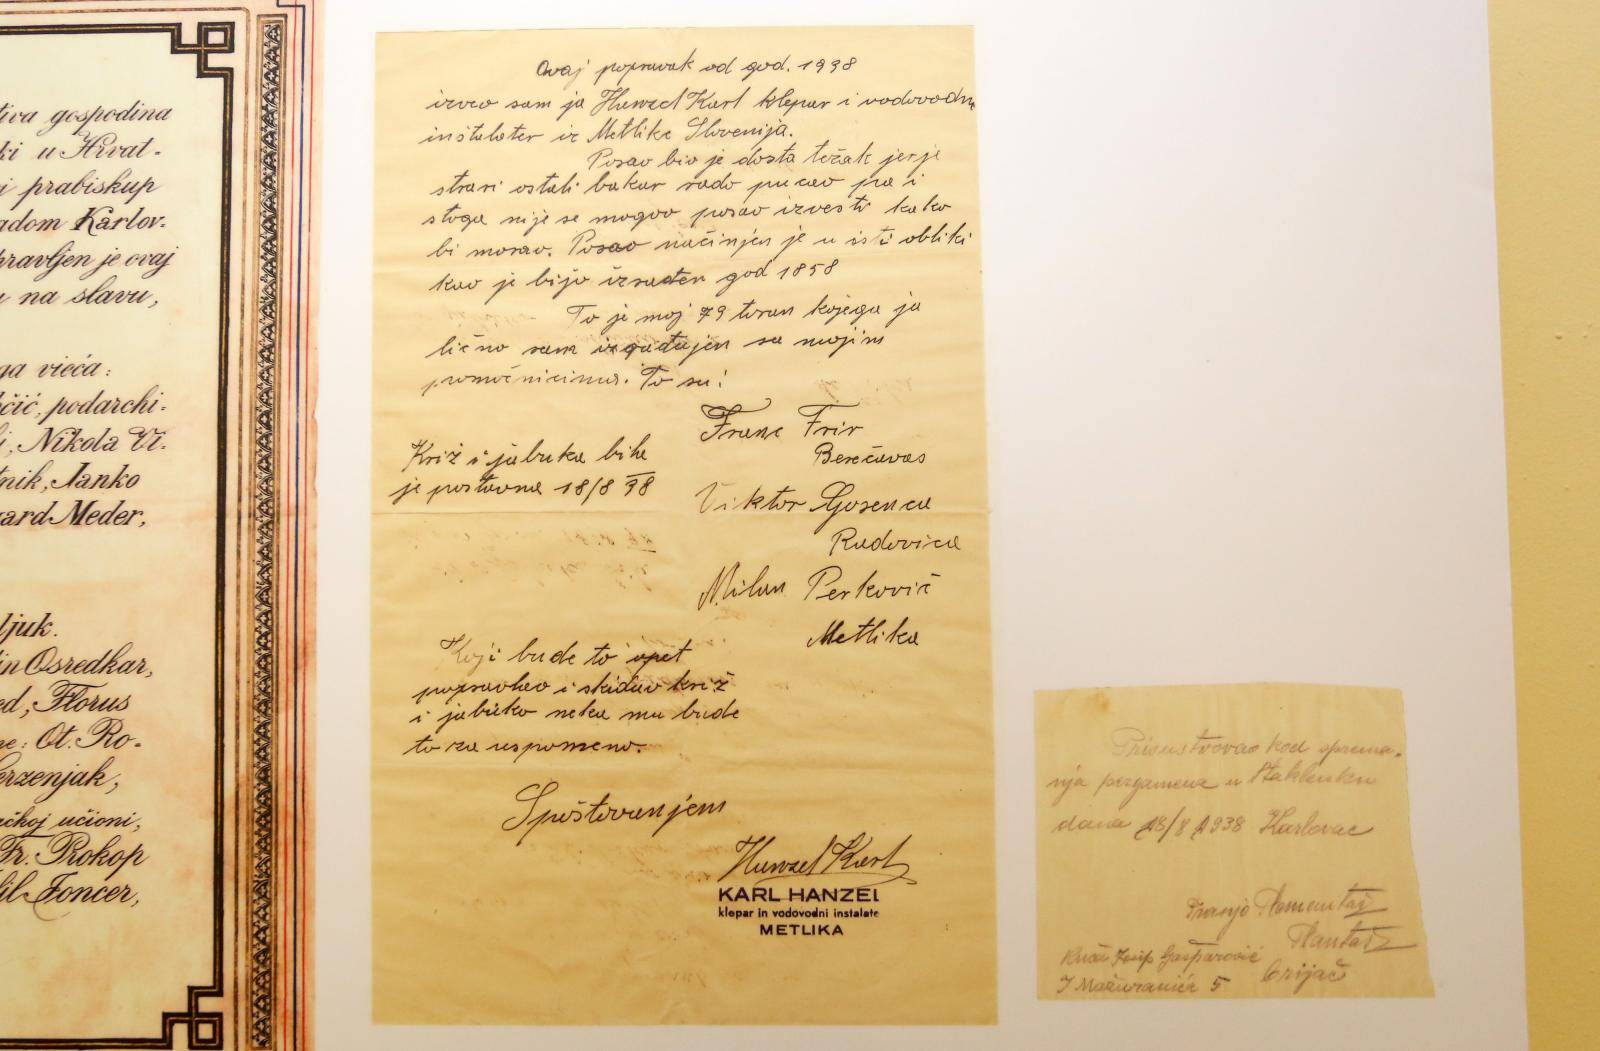 tiva gospodina
ki u Hrvat-
i prabiskup
adom Karlov-
pravljen je ovaj
u na slavu,
ga vieća:
čić, podarchi-
i, Nikola Vi-
tnik, Janko
gard Meder,
ljuk.
in Osredkar,
ed, Florus
ne: Ot. Ro-
erzenjak,
čkoj učioni,
Fr. Prokop
lil Foncer,
Ovaj popravak od god. 1938
izveo sam ja Hanzel Karl klepar i vodovodni
inštalater iz Metlike Slovenija.
Posao bio je dosta težak jer je
stari ostali bakar rado pucao pa i
stoga nije se mogao posao izvesti kako
bi morao. Posao načinjen je u isti obliki
kao je bijo izrađen god 1858
To je moj 79 toran kojega ja
lično sam izgađujen sa mojim
pomočnicima. To su:
Franc Frir
Berečavas
Viktor Gosenca
Radovica
Milan Perkovič
Metlika
Križ i jabuka bila
je postavna 18/8 38
Koji bude to opet
popravlao i skidao križ
i jabuko neka mu bude
to za uspomeno.
Spoštovanjem
Hanzel Karl
KARL HANZEL
klepar in vodovodni instalate
METLIKA
Prisustvovao kod sprema-
nja pergamena u staklenku
dana 18/8 1938 Karlovac
Franjo
Josip Gašparović
I Mažuranića 5